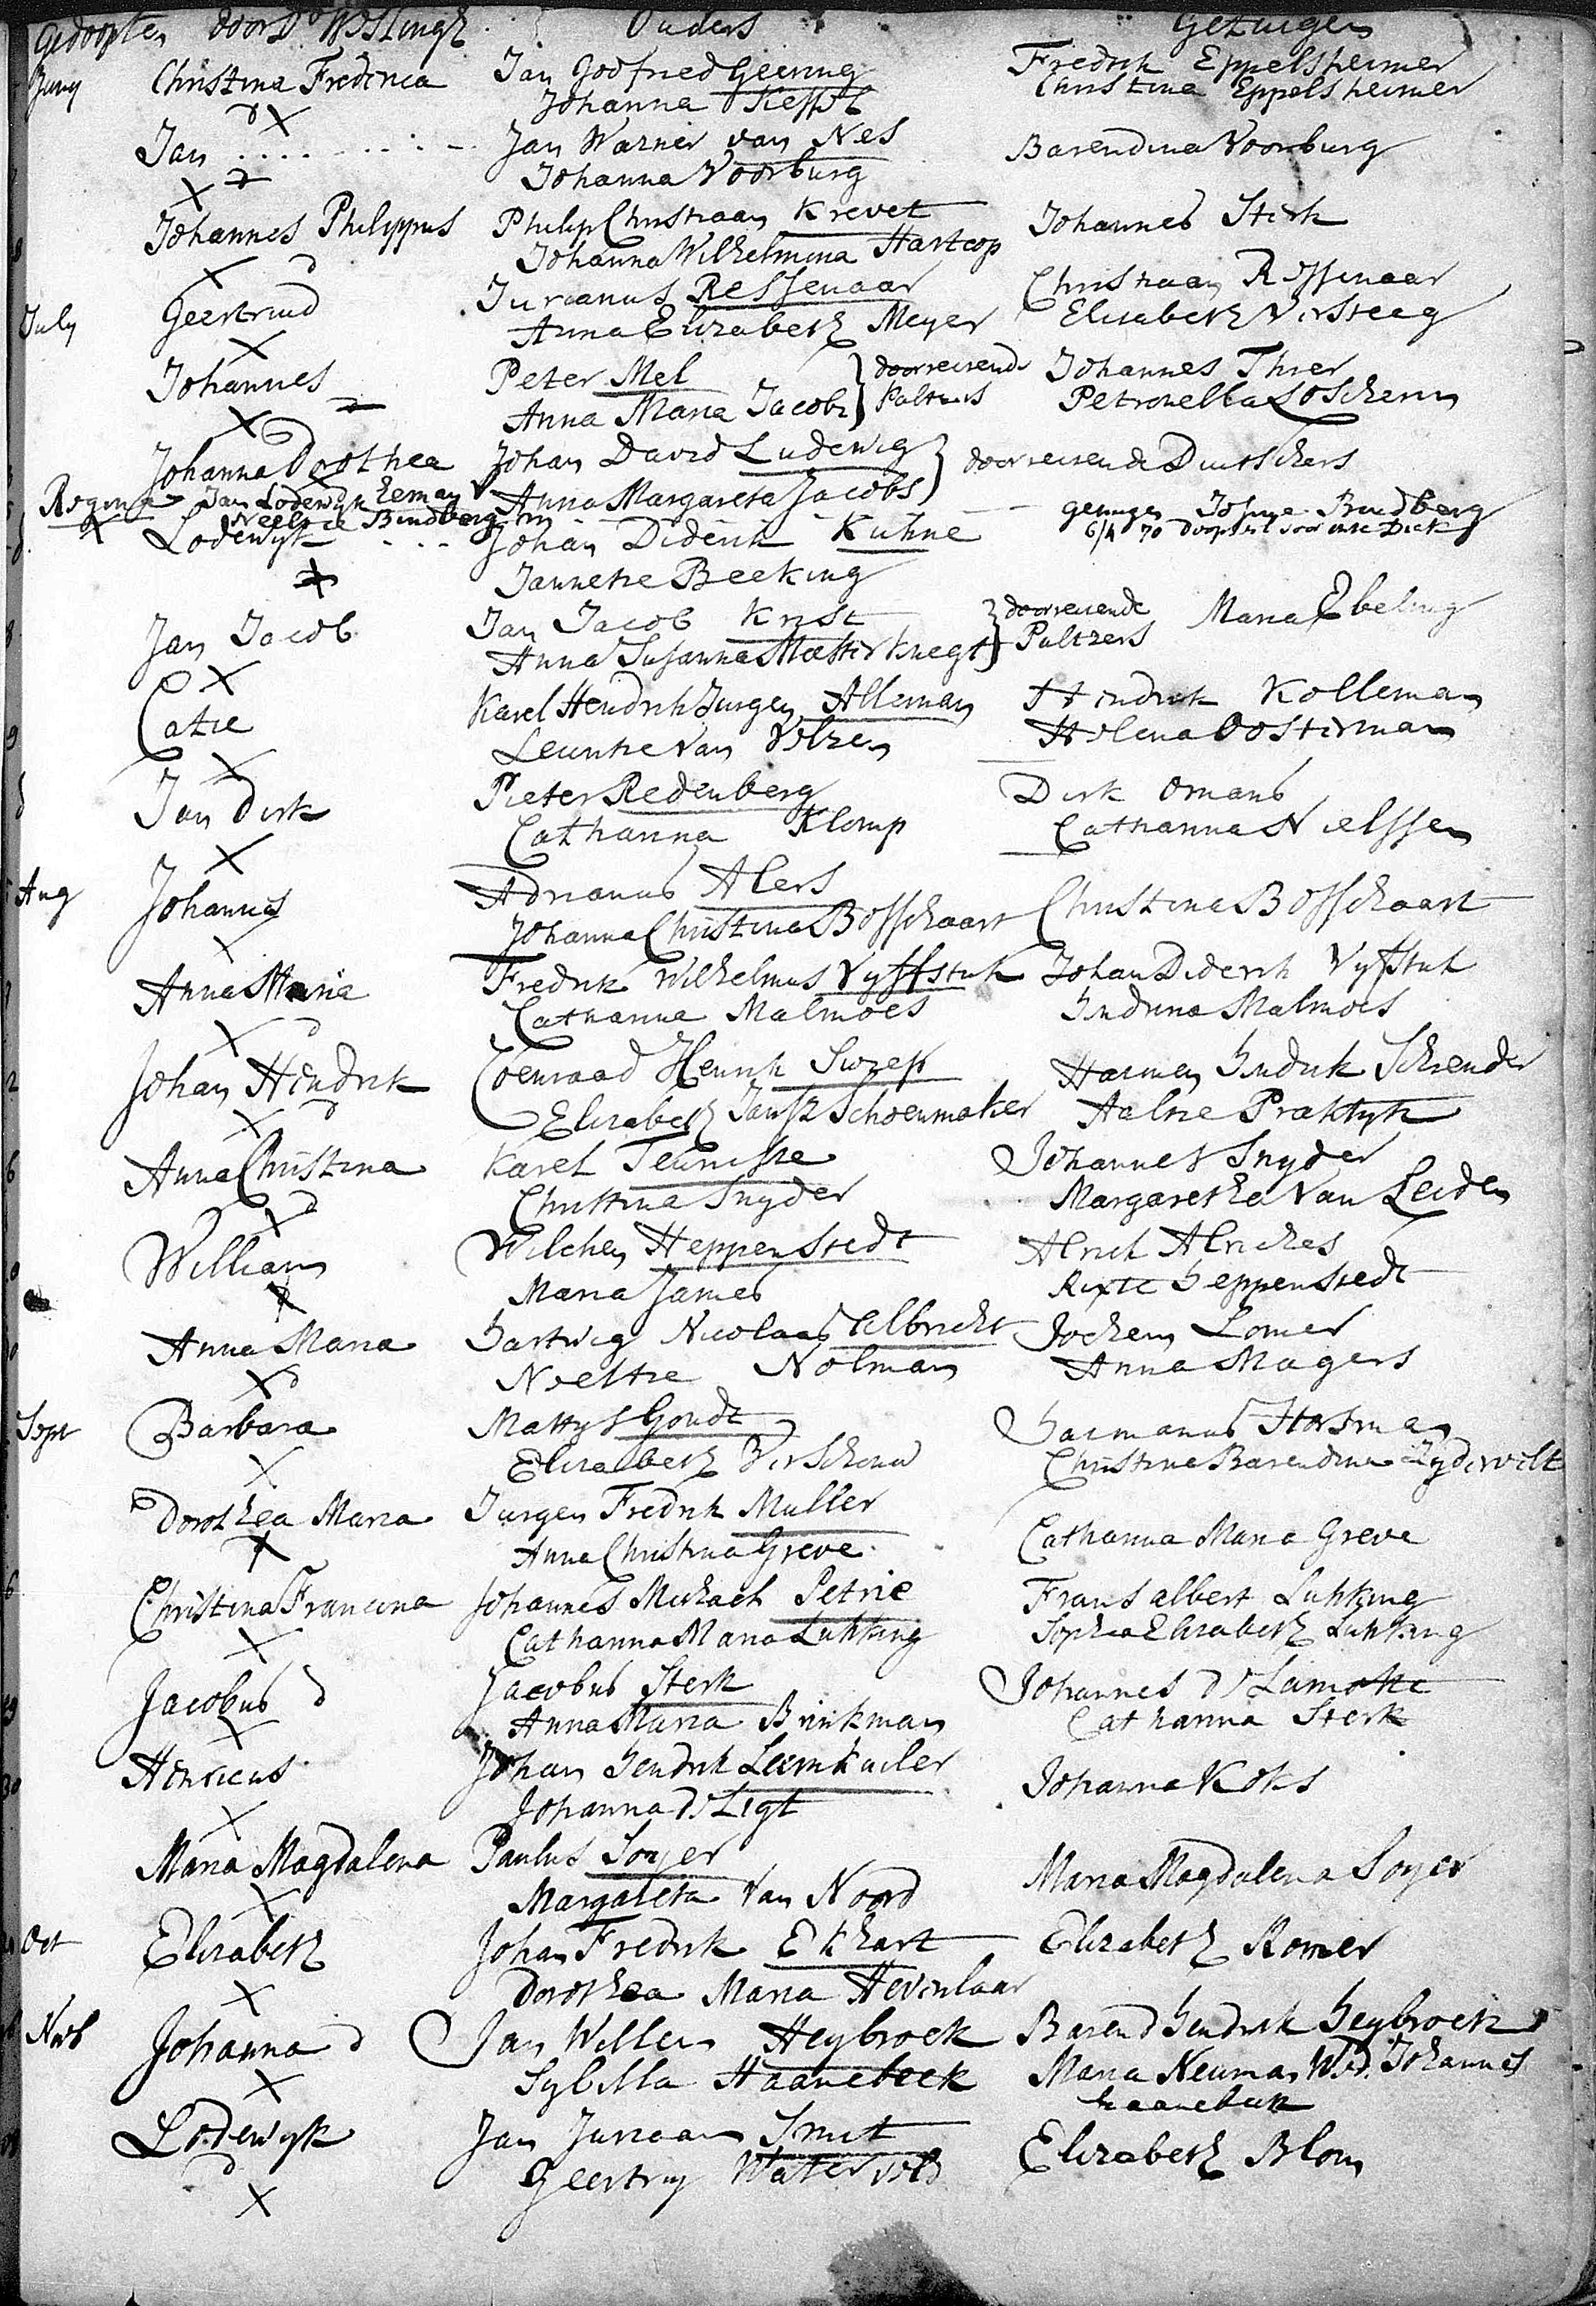 Gedoopten door D° Ouders Getuigen
Juny Christina Frederica Jan Godfried Geering Fredrik Eppelsheimer
Johanna Christina Eppelsheimer
Jan Jan Warner van Nes Barendina Voorburg
Johanna Voorburg
Johannes Philippus Philip Christiaan Krevet Johannes Sterk
Johanna Wilhelmina Hartcop
July Geertruid Jurianus Ressenaar Christiaan Ressenaar
Anna Elizabeth Meyer Elisabeth Versteeg
Johannes Peter Mel doorreisende Johannes
Anna Maria Jacobs Paltzers Petronella
Johanna Dorothea Johan David Ludewig doorreisende Duitschers
Regina Jan Lodewyk Eeman Anna Margareta Jacobs
Neeltie Bindberg getuigen Bindberg
Lodewyk Johan Diderik Kuhne 6/4 70
Jannetie Beeking
Jan Jacob Jan Jacob Krist doorreisende Maria Ebeling
Anna Susanna Paltzers
Catie Karel Hendrik Jurgen Alleman Hendrik Kolleman
Leuntie van Velzen Helena Oosterman
Jan Dirk Pieter Redenberg Dirk Omans
Catharina Klomp Catharina Nielssen
Aug Johannes Adrianus Alers Christina Bosschaart
Johanna Christina Bosschaart
Anna Maria Fredrik Wilhelmus Vyffstuk Johan Diderik Vyfstuk
Catharina Malmoes Hendrina Malmoes
Johan Hendrik Coenraad Henrik Swzep Harmen Hendrik Schreuder
Elizabeth Schoenmaker Aaltie Praktyk
Anna Christina Karel Teunisse Johannes Snyder
Christina Snyder Margaretha van Leiden
William Wilchen Heppenstedt Alrich Alriches
Maria James Rixte Heppenstedt
Anna Maria Hartwig Nicolaas Albricht Jochem Lomer
Neeltie Nolman Anna Magers
Sept Barbara Mattys Goudt Harmanus Horsman
Elizabeth Verschouw Christina Barendina Zydervelt
Dorothea Maria Jurgen Fredrik Muller Catharina Maria Greve
Anna Christina Greve
Christina Francina Johannes Michael Petrie Frans Albert Luhking
Catharina Maria Luhking Sophia Elizabeth Luhking
Jacobus Jacobus Sterk Johannes d' Lamotte
Anna Maria Brinkman Catharina Sterk
Henricus Johan Hendrik Leemkuiler Johanna Koks
Johanna d' Ligt
Maria Magdalena Paulus Soyer Maria Magdalena Soyer
Margareta van Noord
Oct Elizabeth Johan Fredrik Ekhart Elizabeth Romer
Dorothea Maria Hevenlaar
Novb Johanna Jan Willem Heybroek Barend Hendrik Heybroek
Sybilla Haanebeek Maria Neuman Wed. Johannes
Haanebeek
Lodewyk Jan Juriaan Smit Elizabeth Blom
Geertruy Waterveld